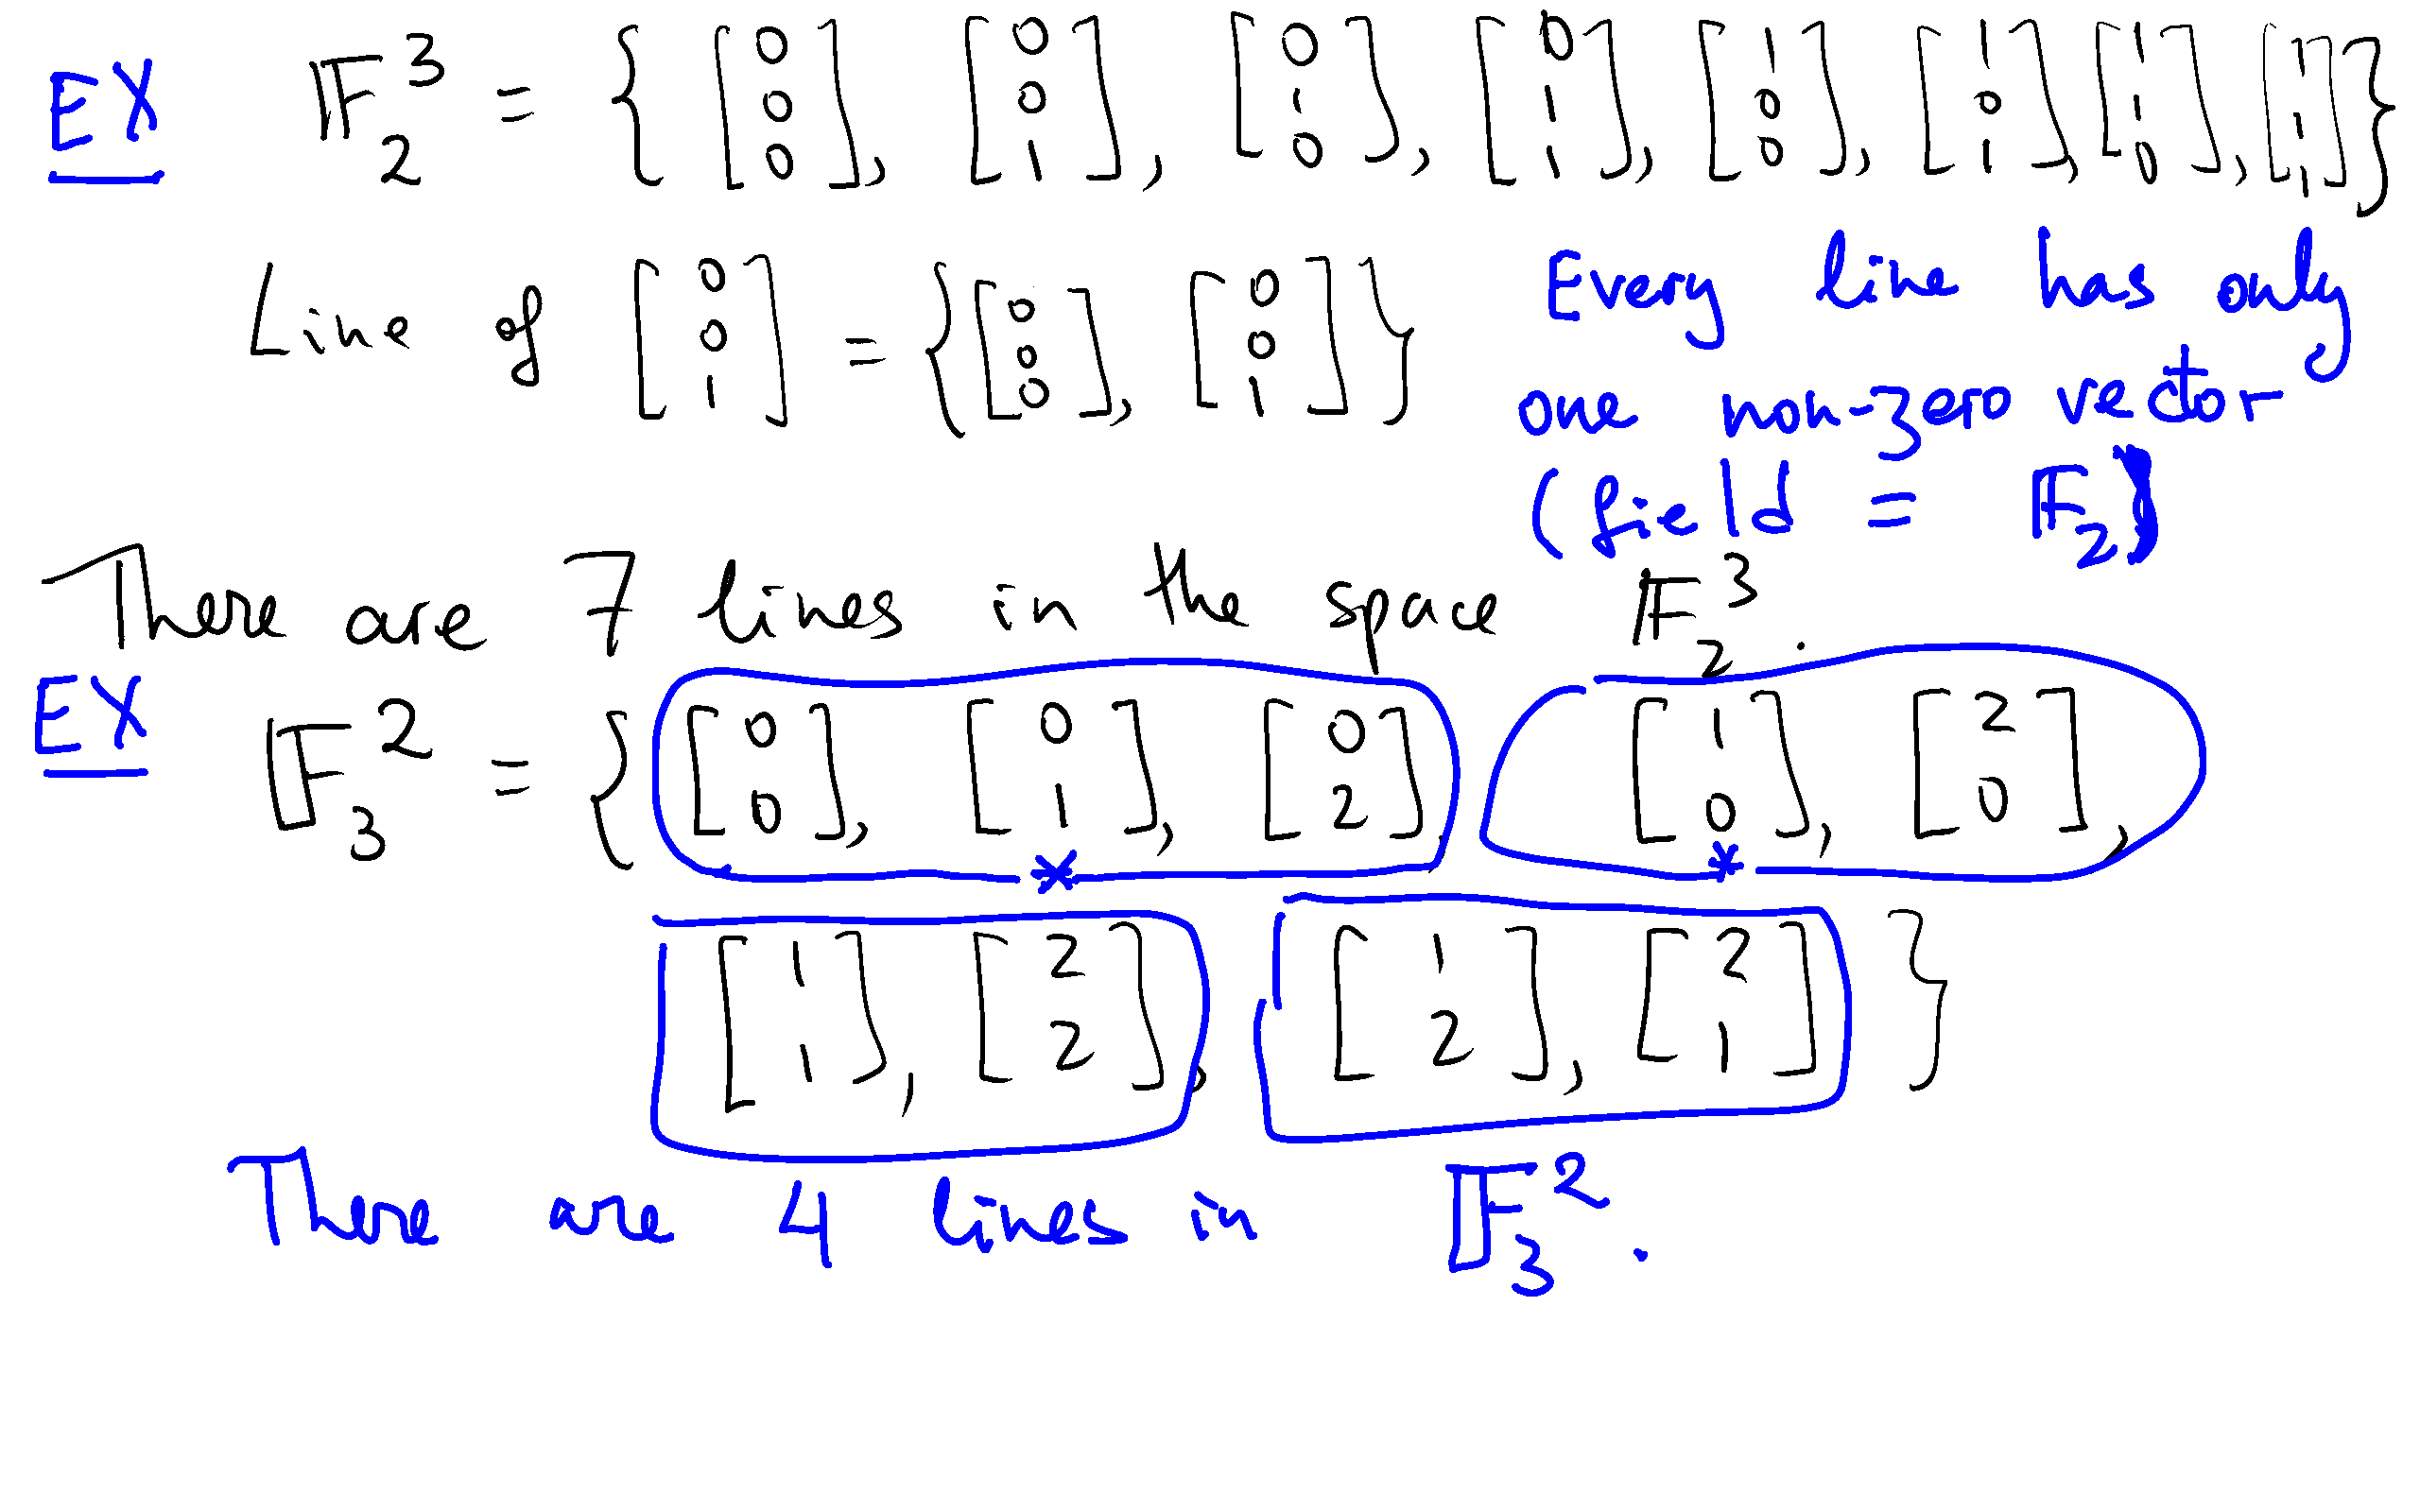 EX 𝔽₂³ = { [0 0 0], [0 0 1], [0 1 0], [0 1 1], [1 0 0], [1 0 1], [1 1 0], [1 1 1] }
Line of [0 0 1] = { [0 0 0], [0 0 1] }
Every line has only
one non-zero vector
(field = 𝔽₂)
There are 7 lines in the space 𝔽₂³.
EX 𝔽₃² = { [0 0], [0 1], [0 2] [1 0], [2 0],
* *
[1 1], [2 2], [1 2], [2 1] }
There are 4 lines in 𝔽₃².